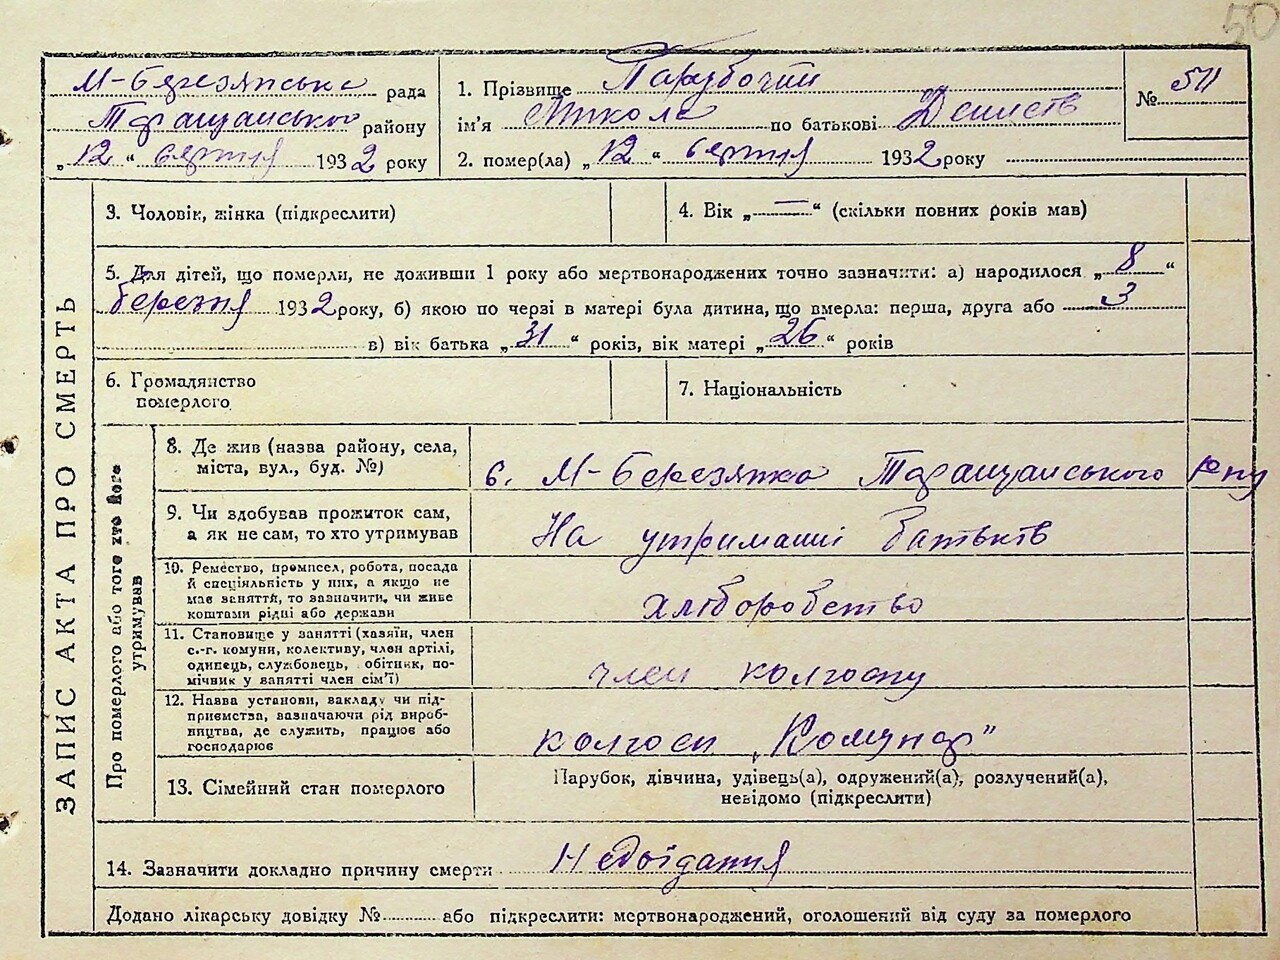 50
М-Березянська рада
Таращанського району
„12“ серпня 1932 року
1. Прізвище Парубочий
ім'я Микола по батькові
2. помер(ла) „12“ серпня 1932 року
№ 511
ЗАПИС АКТА ПРО СМЕРТЬ
3. Чоловік, жінка (підкреслити)
4. Вік „—“ (скільки повних років мав)
5. Для дітей, що померли, не доживши 1 року або мертвонароджених точно зазначити: а) народилося „8“
березня 1932 року, б) якою по черзі в матері була дитина, що вмерла: перша, друга або 3
в) вік батька „31“ років, вік матері „26“ років
6. Громадянство
померлого
7. Національність
Про померлого або того хто його
утримував
8. Де жив (назва району, села,
міста, вул., буд. №)
с. М-Березянка Таращанського р-ну
9. Чи здобував прожиток сам,
а як не сам, то хто утримував
На утриманні батьків
10. Ремество, промисел, робота, посада
й спеціяльність у них, а якщо не
має заняття, то зазначити, чи живе
коштами рідні або держави
хліборобство
11. Становище у занятті (хазяїн, член
с.-г. комуни, колективу, член артілі,
одинець, службовець, обітник, по-
мічник у занятті член сім'ї)
член колгоспу
12. Назва установи, закладу чи під-
приємства, зазначаючи рід вироб-
ництва, де служить, працює або
господарює
колгосп „Комунар"
13. Сімейний стан померлого
Парубок, дівчина, удівець(а), одружений(а), розлучений(а),
невідомо (підкреслити)
14. Зазначити докладно причину смерти Недоїдання
Додано лікарську довідку № або підкреслити: мертвонароджений, оголошений від суду за померлого